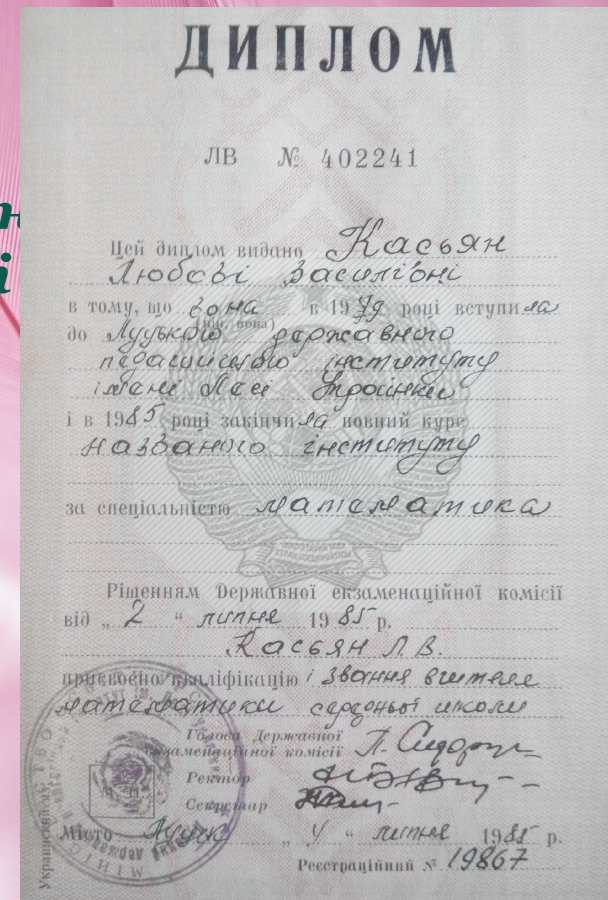 ДИПЛОМ
ЛВ № 402241
Цей диплом видано Касьян
Любові Василівні
в тому, що вона в 1979 році вступила
(він, вона)
до Луцького державного
педагогічного інституту
імені Лесі Українки
і в 1985 році закінчила повний курс
названого інституту
за спеціальністю математика
Рішенням Державної екзаменаційної комісії
від „ 2 “ липня 1985 р.
Касьян Л.В.
присвоєно кваліфікацію і звання вчителя
математики середньої школи
Голова Державної
екзаменаційної комісії
Ректор
Секретар
М П
Місто Луцьк „ 4 “ липня 1985 р.
Реєстраційний № 19867